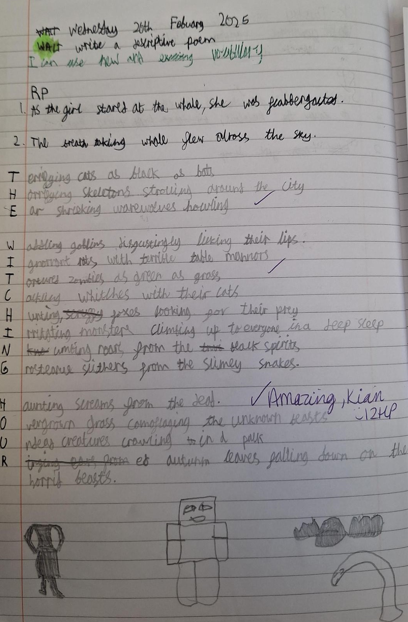 WALT Wednesday 26th Febuary 2025
WALT write a descriptive poem
I can use new and exciting vocabulary
RP
1. As the girl stared at the whale, she was flabbergasted.
2. The breath taking whale flew across the sky.
T errifying cats as black as bats,
H orrifying skeletons strolling around the city
E ar shreiking warewolves howling
W addling goblins disgusingly licking their lips.
I gnorant with terrible table manners
T zombies as green as grass,
C ackling whitches with their cats
H unting, foxes looking for their prey
I rritating monsters climbing up to everyone in a deep sleep
N from the black spirits,
G slithers from the slimey snakes.
H aunting screams from the dead.
O vergrown grass the unknown beasts
U ndead creatures crawling in a pack
R autumn leaves falling down on the
horrid beasts.
Amazing, Kian
12HP